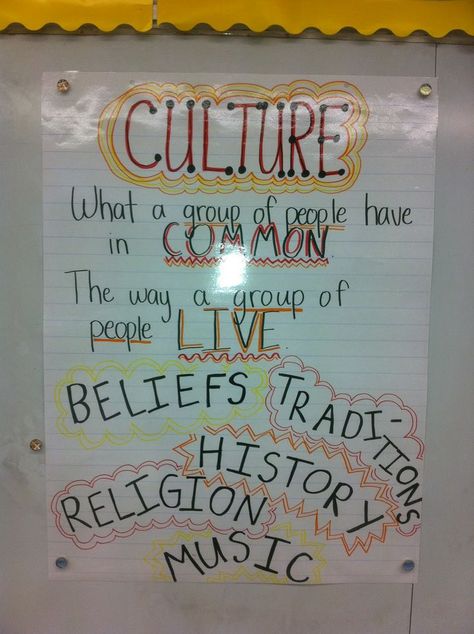 CULTURE
What a group of people have
in COMMON
The way a group of
people LIVE
BELIEFS
TRADI-
TIONS
HISTORY
RELIGION
MUSIC